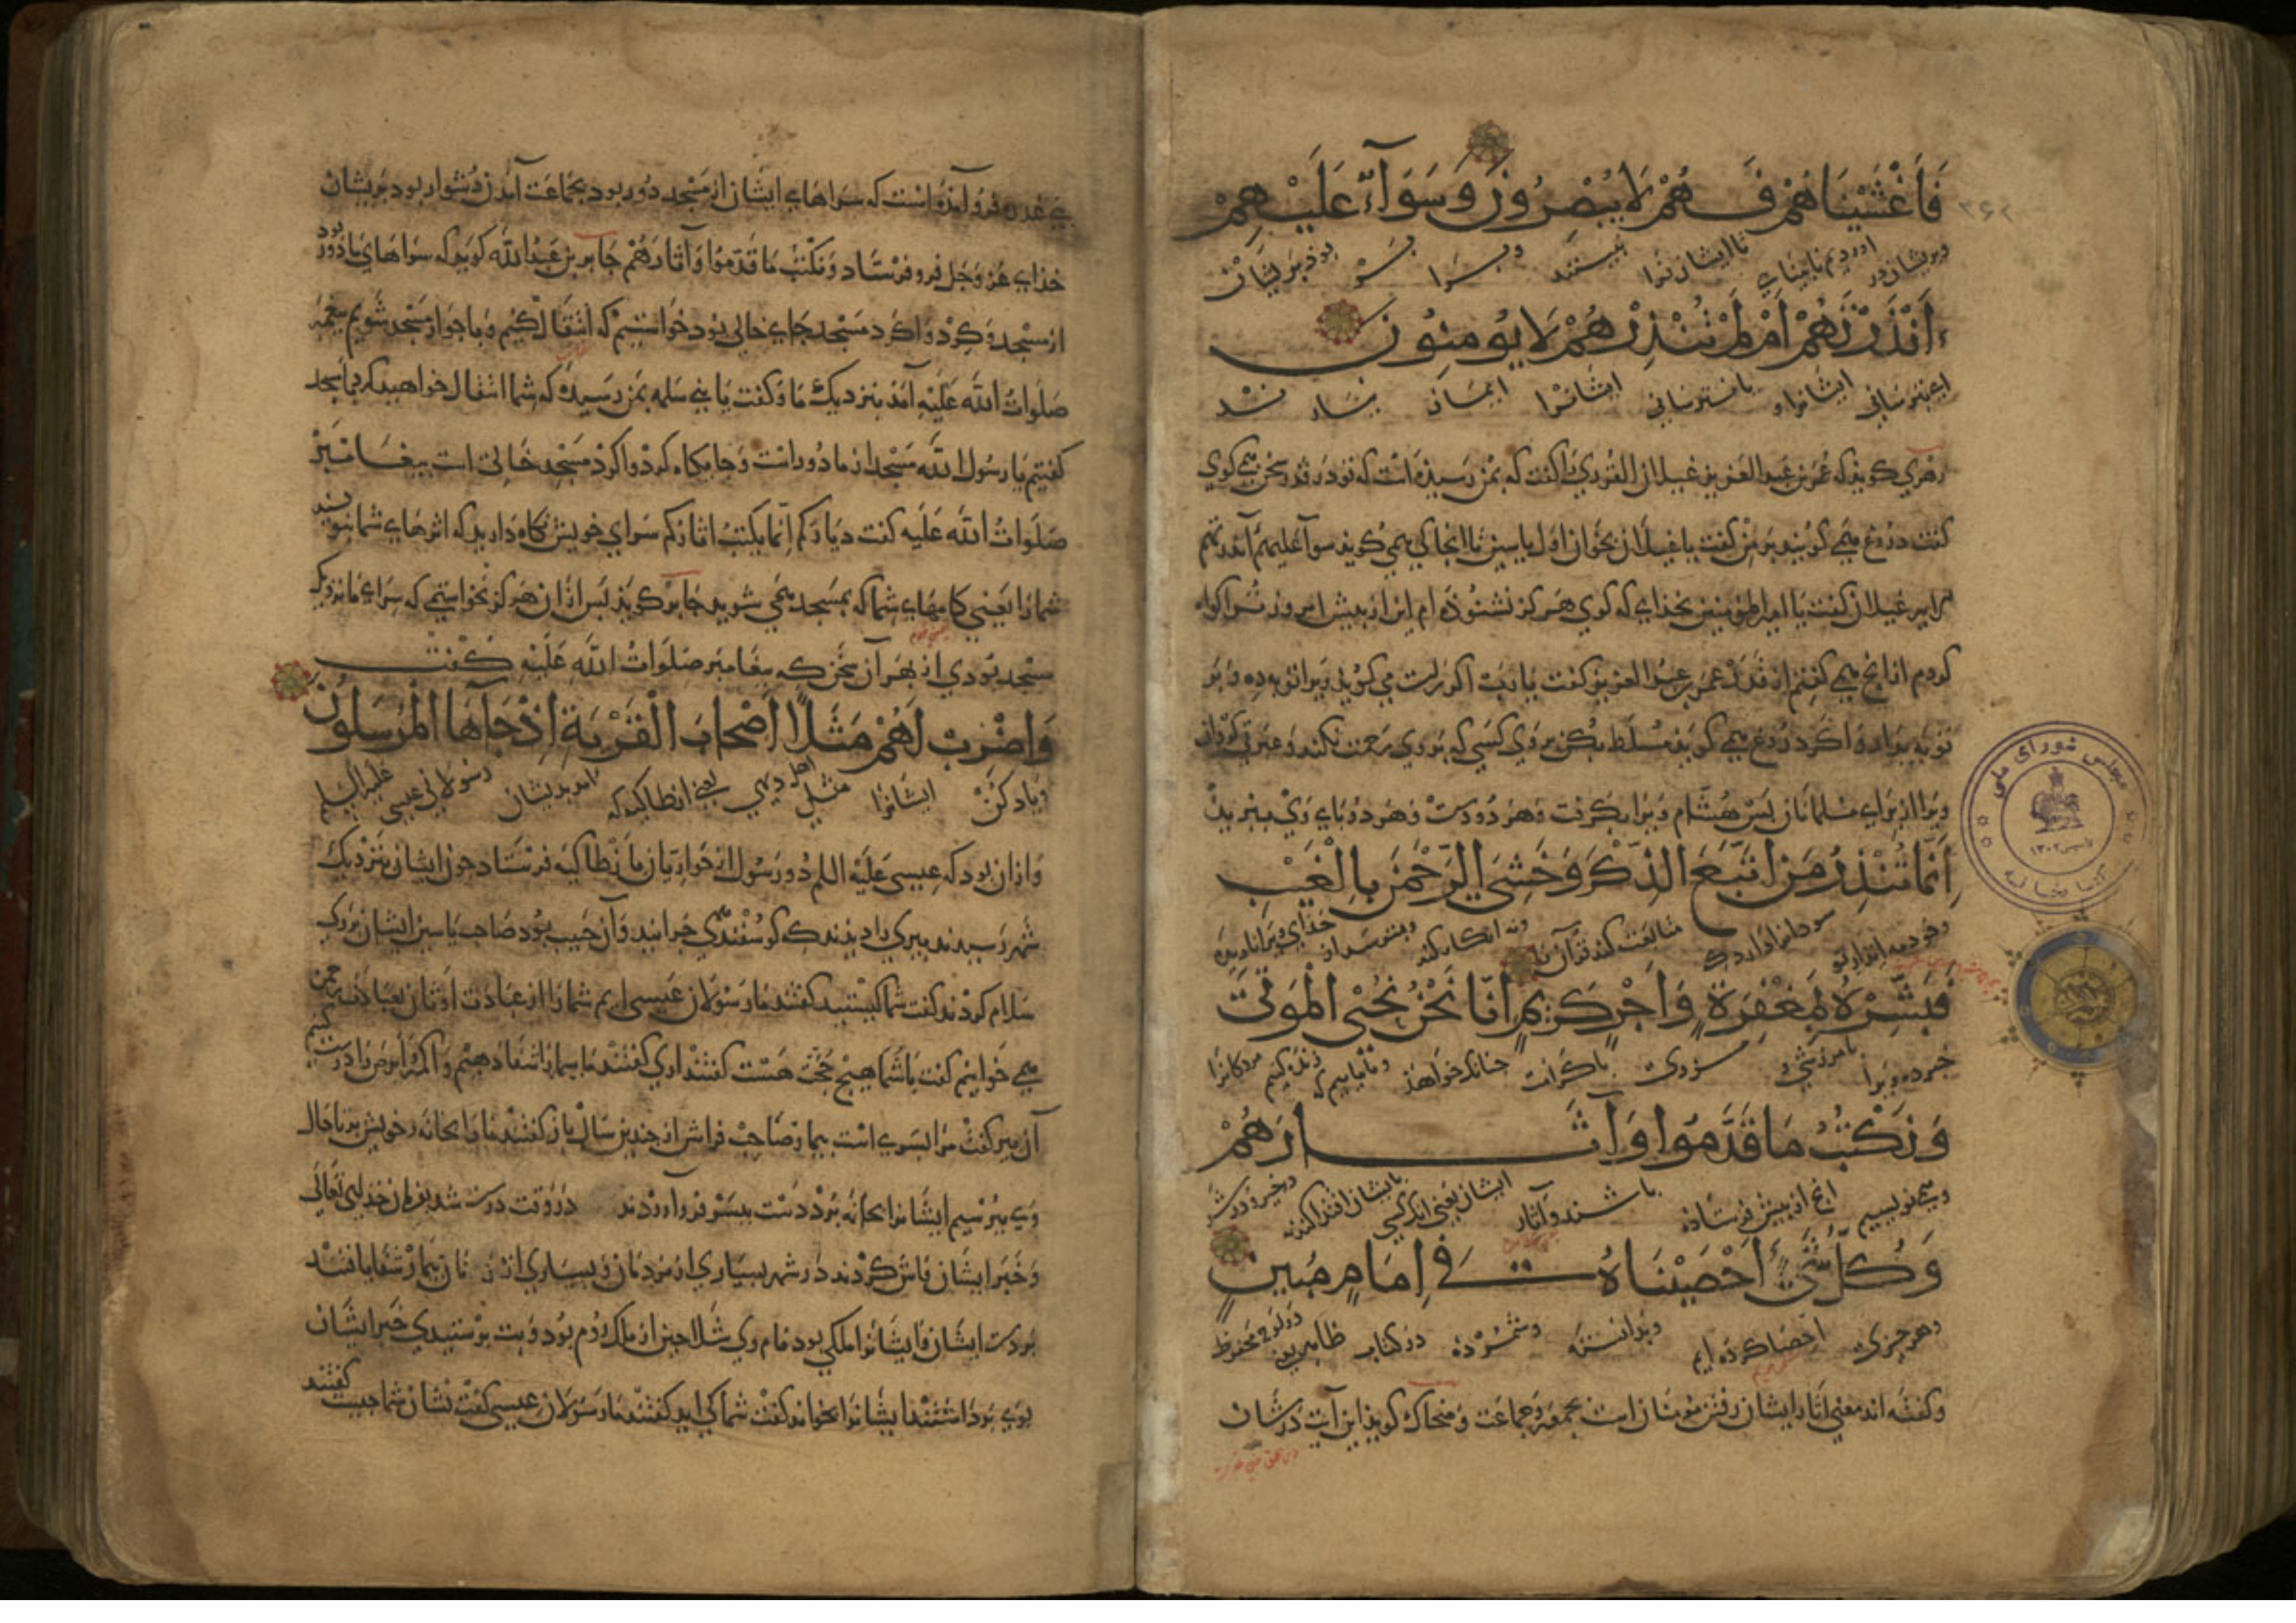 فَاَغْشَيْنَاهُمْ فَهُمْ لَا يُبْصِرُونَ وَسَوَآءٌ عَلَيْهِمْ
وبریشان در اوردیم نابینایی تا ایشان نبینند بوذ بریشان
ءَاَنْذَرْتَهُمْ اَمْ لَمْ تُنْذِرْهُمْ لَا يُومِنُونَ
ایشانرا و یا نترسانی ایشانرا ایمان نیارند
زهری کویذ که عمر بن عبد العزیز غیلان القدری را کفت که بمن رسیذه است که تو در قدر سخن می کوی
کفت دروغ می کویند بر من کفت یا غیلان بخوان اول یاسین تا انجا کی می کوید سوآ علیهم ءانذرتهم
غیلان کفت یا امیر المومنین بخذای که کوی هرکز نشنوذه ام این از پیش امروز ترا کواه
کردم از انج می کفتم از قدر عمر بن عبد العزیز کفت یا رب اکر راست می کویذ ویرا توبه ده و بر
توبه بدار و اکر دروغ می کویذ مسلط بکن بر وی کسی که بر وی رحمت نکند و عبرتی کردان
ویرا از برای مسلمانان پس هشام ویرا بکرفت و هر دو دست و هر دو پای وی ببرید
اِنَّمَا تُنْذِرُ مَنِ اتَّبَعَ الذِّكْرَ وَخَشِيَ الرَّحْمٰنَ بِالْغَيْبِ
سود متابعت کند قرآن را وبترسد از خذای
فَبَشِّرْهُ بِمَغْفِرَةٍ وَاَجْرٍ كَرِيمٍ اِنَّا نَحْنُ نُحْيِ الْمَوْتٰى
خبر ده ویرا بامرزشی و مزدی زنده کنیم مردکانرا
وَنَكْتُبُ مَا قَدَّمُوا وَآثَارَهُمْ
ومی نویسیم انج از پیش فرستاذه باشند و آثار ایشان یعنی
وَكُلَّ شَيْءٍ اَحْصَيْنَاهُ فِي اِمَامٍ مُبِينٍ
وهر چیزی احصا کرده ایم وبدانسته وشمرده در کتاب ظاهر لوح محفوظ
وکفته اند معنی آثار ایشان رفتن مومنان است بجمعه و جماعت وضحاک کویذ این آیت در شان
مجلس شورای ملی
۱۳۰۲
فروآمذه است که سراهای ایشان از مسجد دور بود بجماعت آمدن دشوار بود بریشان
خذای عز وجل فرو فرستاد ونکتب ما قدموا وآثارهم جابر بن عبد الله کویذ که سراهای ما دور بود
از مسجد و کرد واکرد مسجد جای خالی بود خواستیم که انتقال کنیم و با جوار مسجد شویم
صلوات الله علیه آمد بنزدیک ما و کفت یا بنی سلمه بمن رسید که شما انتقال خواهید کرد با مسجد
کفتیم یا رسول الله مسجد از ما دور است وجایکاه کرد واکرد مسجد خالی است پیغامبر
صلوات الله علیه کفت دیارکم انما یکتب اثارکم سرای خویش نکاه دارید که اثرهای شما بنویسند
شما را یعنی کامهای شما که بمسجد می شوید جابر کویذ پس از ان هرکز نخواستمی که سرای ما نزدیک
مسجد بودی از بهر آن سخن که پیغامبر صلوات الله علیه کفت
وَاضْرِبْ لَهُمْ مَثَلًا اَصْحَابَ الْقَرْيَةِ اِذْ جَآءَهَا الْمُرْسَلُونَ
ویاد کن ایشانرا مثل اهل دیهی یعنی انطاکیه که امد بدیشان رسولانی عیسی علیه السلم
واز ان بود که عیسی علیه السلم دو رسول از حواریان با نطاکیه فرستاد چون ایشان بنزدیک
شهر رسیدند پیری را دیدند که کوسفندی چرانید وآن حبیب بود صاحب یاسین ایشان بر وی
سلام کردند کفت شما کیستید کفتند ما رسولان عیسی ایم شما را از عبادت اوثان بعبادت رحمن
می خوانیم کفت با شما هیچ حجت هست کفتند اری کفتند ما بیمار را شفا دهیم و اکمه و ابرص را درست کنیم
آن پیر کفت مرا پسری است بیمار صاحب فراش از چندین سال باز کفتند ما را بخانه خویش بر تا حال
وی بپرسیم ایشانرا بخانه برد دست بپسر فرو آوردند در وقت درست شد بفرمان خذای تعالی
وخبر ایشان فاش کردند در شهر بسیاری از مردمان و بسیاری از بیماران شفا یافتند
بر دست ایشان و ایشانرا ملکی بود نام وی شلاحین از ملک روم بود وبت پرستیدی خبر ایشان
بوی برداشتند ایشانرا بخواند کفت شما کی اید کفتند ما رسولان عیسی کفت نشان شما چیست کفتند